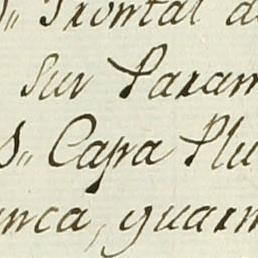 Frontal d
Sur Param
S" Capa Plu
anca, guarn